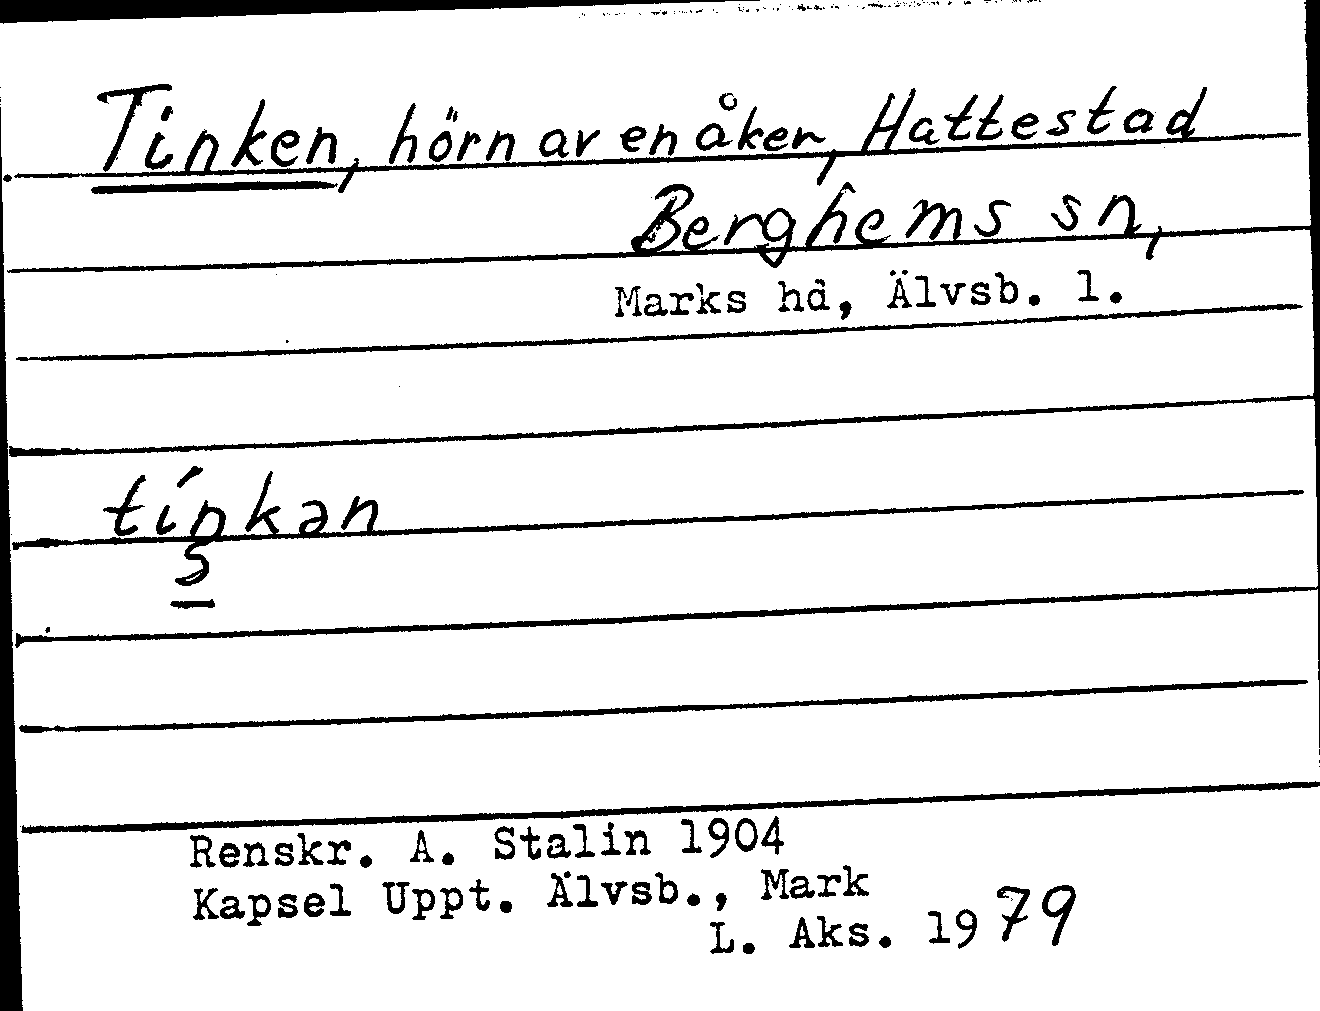 Tinken, hörn av en åker, Hattestad
Berghems sn,
Marks hd, Älvsb. l.
tínkən
Renskr. A. Stalin 1904
Kapsel Uppt. Älvsb., Mark
L. Aks. 1979